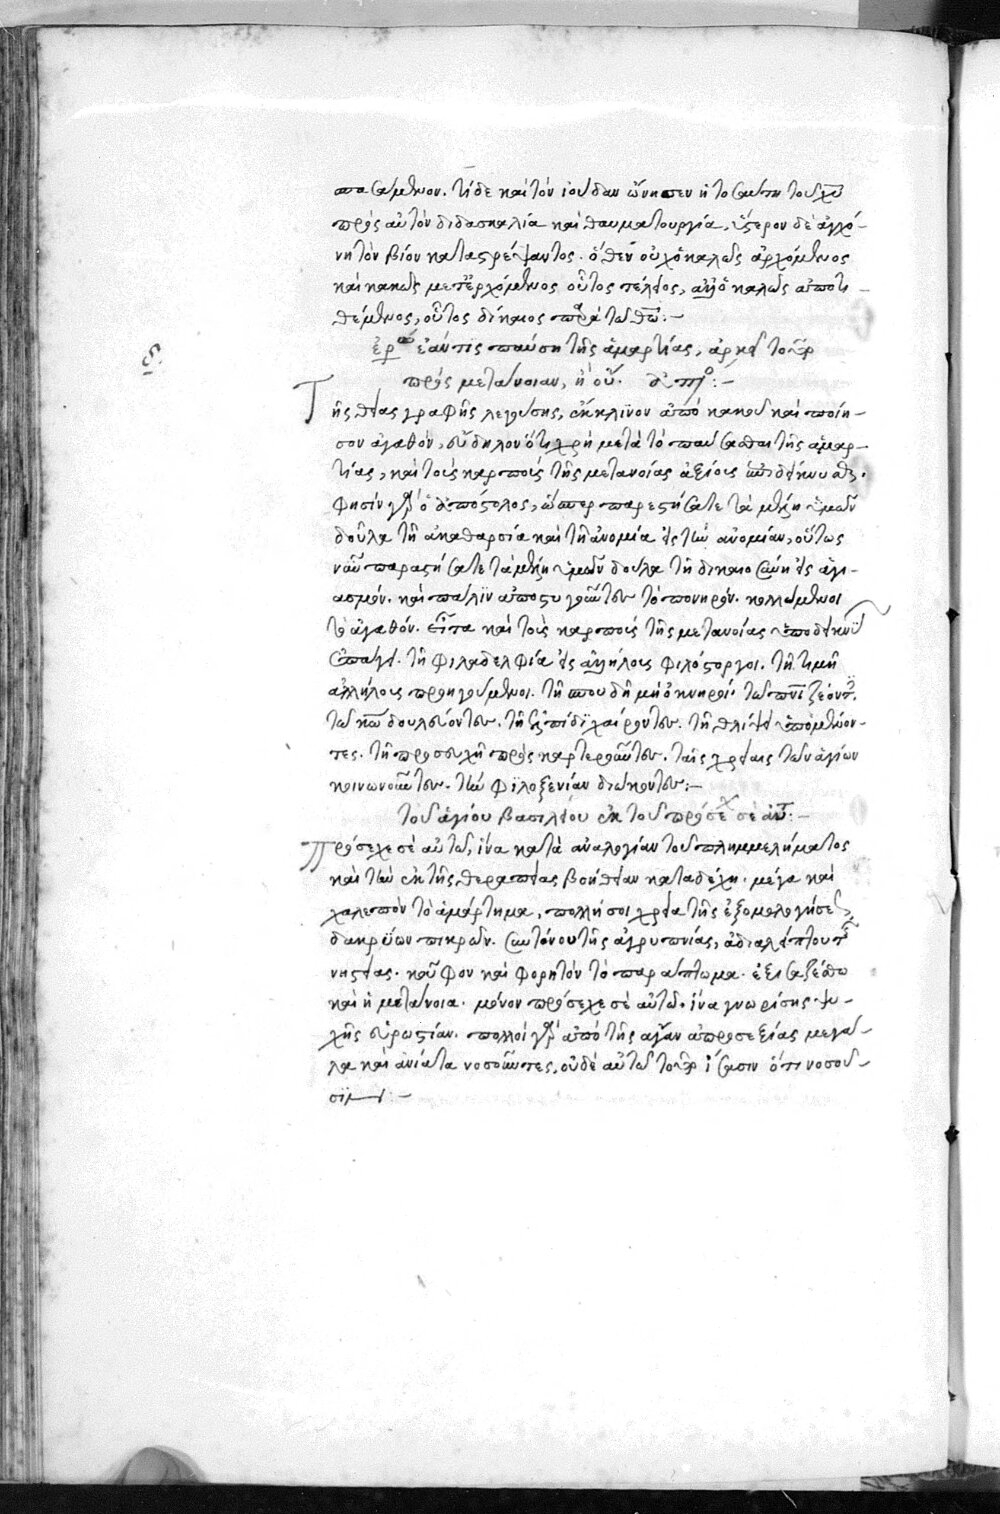 σπασάμενον. τί δὲ καὶ τὸν ἰούδαν ὤνησεν ἡ τοσαύτη τοῦ χῦ
πρὸς αὐτὸν διδασκαλία καὶ θαυματουργία, ὕστερον δὲ ἀγχό-
νη τὸν βίον καταστρέψαντος. ὅθεν οὐχ ὁ καλῶς ἀρχόμενος
καὶ κακῶς μετερχόμενος οὗτος τέλειος, ἀλλ' ὁ καλῶς ἀποτι-
θέμενος, οὗτος δίκαιος παρὰ τῶ θῶ:-
ε.
ἐρ ἐάν τις παύση τῆς ἁμαρτίας, ἀρκεῖ τοῦτο
πρὸς μετάνοιαν, ἢ οὔ. ἀπο:-
Τῆς θείας γραφῆς λεγούσης, ἔκκλινον ἀπὸ κακοῦ καὶ ποίη-
σον ἀγαθὸν, εὔδηλον ὅτι χρὴ μετὰ τὸ παύσασθαι τῆς ἁμαρ-
τίας, καὶ τοὺς καρποὺς τῆς μετανοίας ἀξίους
φησὶν γὰρ ὁ ἀπόστολος, ὥσπερ παρεστήσατε τὰ μέλη ὑμῶν
δοῦλα τῆ ἀκαθαρσία καὶ τῆ ἀνομία εἰς τὴν ἀνομίαν, οὕτως
νῦν παραστήσατε τὰ μέλη ὑμῶν δοῦλα τῆ δικαιοσύνη εἰς ἁγι-
ασμόν. καὶ πάλιν ἀποστυγοῦντες τὸ πονηρόν. κολλώμενοι
τῶ ἀγαθόν. εἶτα καὶ τοὺς καρποὺς τῆς μετανοίας ὑποδεικνύ
ἐπάγει. τῆ φιλαδελφία εἰς ἀλλήλους φιλόστοργοι. τῆ τιμῆ
ἀλλήλους προηγούμενοι. τῆ σπουδῆ μὴ ὀκνηροί. τῶ πνι ζέοντες
τῶ κω δουλεύοντες. τῆ ἐλπίδι χαίροντες. τῆ θλίψει ὑπομένον-
τες. τῆ προσευχῆ προσκαρτεροῦντες. ταῖς χρείαις τῶν ἁγίων
κοινωνοῦντες. τὴν φιλοξενίαν διώκοντες:-
τοῦ ἁγίου βασιλείου ἐκ τοῦ πρόσεχ σεαυτ:-
Πρόσεχε σεαυτῶ, ἵνα κατὰ ἀναλογίαν τοῦ πλημμελήματος
καὶ τὴν ἐκ τῆς θεραπείας βοήθειαν καταδέχη. μέγα καὶ
χαλεπὸν τὸ ἁμάρτημα, πολλῆ σοι χρεία τῆς ἐξομολογήσεως
δακρύων πικρῶν. συντόνου τῆς ἀγρυπνίας, ἀδιαλείπτου τῆς
νηστείας. κοῦφον καὶ φορητὸν τὸ παράπτωμα. ἐξισαζέσθω
καὶ ἡ μετάνοια. μόνον πρόσεχε σεαυτῶ. ἵνα γνωρίσης ψυ-
χῆς εὐρωστίαν. πολλοὶ γὰρ ἀπὸ τῆς ἄγαν ἀπροσεξίας μεγά-
λα καὶ ἀνίατα νοσοῦντες, οὐδὲ αὐτὸ τοῦτο ἴσασιν ὅτι νοσοῦ-
σιν:-